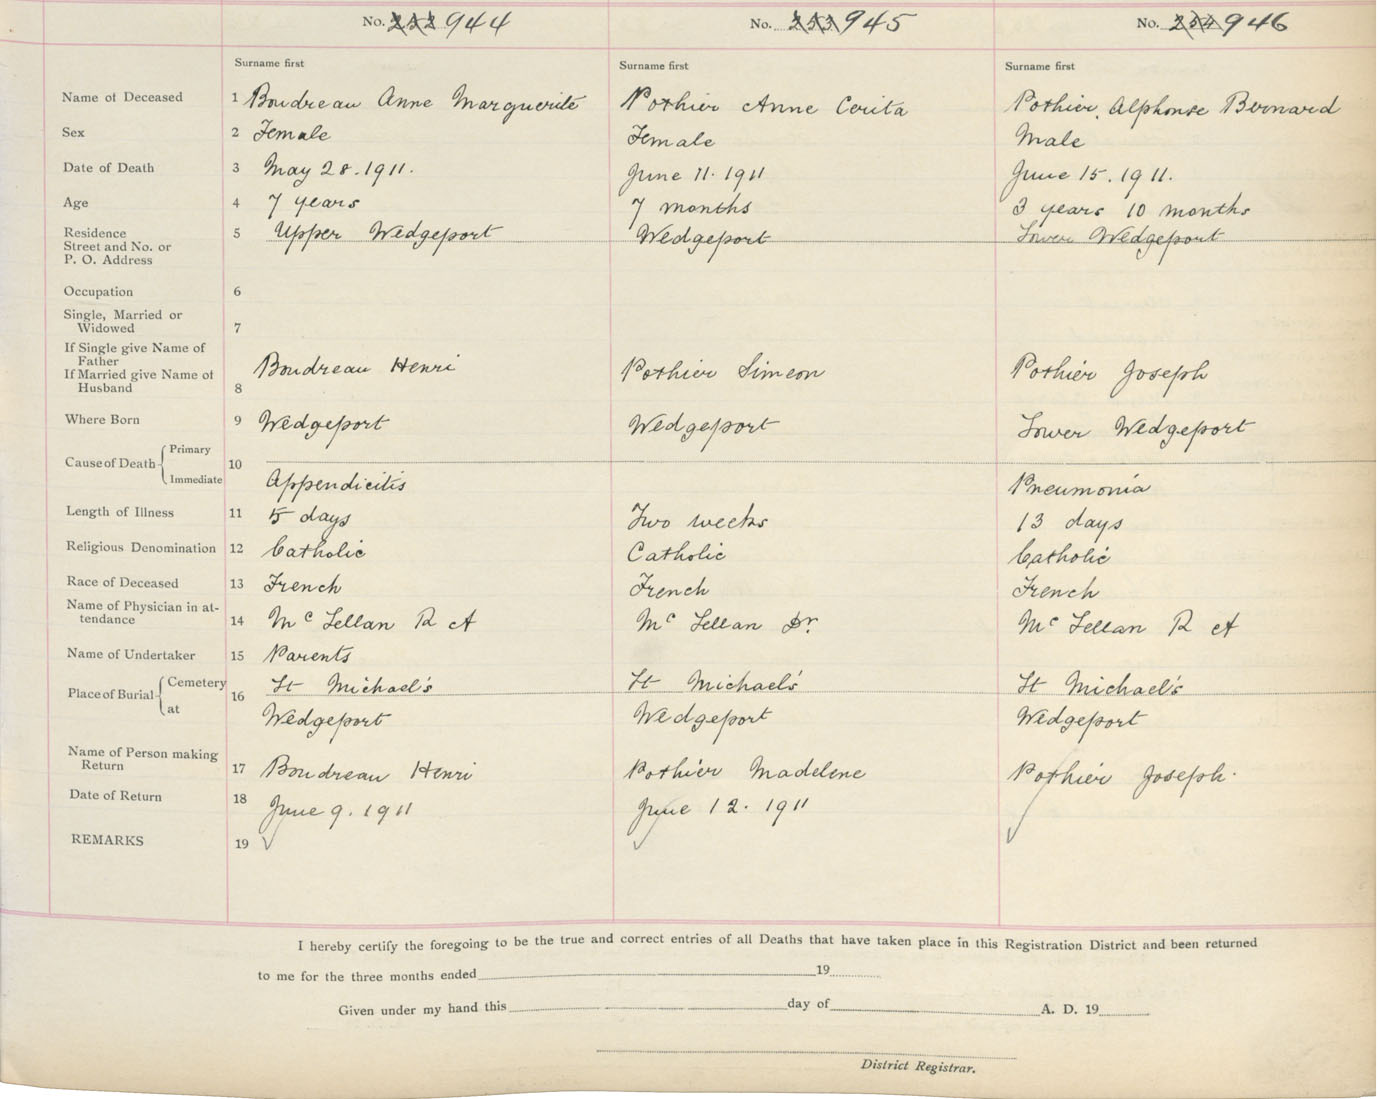 No. 252 944 No. 253 945 No. 254 946
Surname first Surname first Surname first
Name of Deceased 1 Boudreau Anne Marguerite Pothier Anne Cerita Pothier, Alphonse Bernard
Sex 2 Female Female Male
Date of Death 3 May 28. 1911. June 11. 1911 June 15. 1911.
Age 4 7 years 7 months 3 years 10 months
Residence 5 Upper Wedgeport Wedgeport Lower Wedgeport
Street and No. or
P. O. Address
Occupation 6
Single, Married or
Widowed 7
If Single give Name of
Father
If Married give Name of
Husband 8 Boudreau Henri Pothier Simeon Pothier Joseph
Where Born 9 Wedgeport Wedgeport Lower Wedgeport
Cause of Death Primary 10
Immediate Appendicitis Pneumonia
Length of Illness 11 5 days Two weeks 13 days
Religious Denomination 12 Catholic Catholic Catholic
Race of Deceased 13 French French French
Name of Physician in at-
tendance 14 Mc Lellan R A Mc Lellan Dr. Mc Lellan R A
Name of Undertaker 15 Parents
Place of Burial Cemetery 16 St Michael's St Michael's St Michael's
at Wedgeport Wedgeport Wedgeport
Name of Person making
Return 17 Boudreau Henri Pothier Madelene Pothier Joseph.
Date of Return 18 June 9. 1911 June 12. 1911
REMARKS 19
I hereby certify the foregoing to be the true and correct entries of all Deaths that have taken place in this Registration District and been returned
to me for the three months ended 19
Given under my hand this day of A. D. 19
District Registrar.